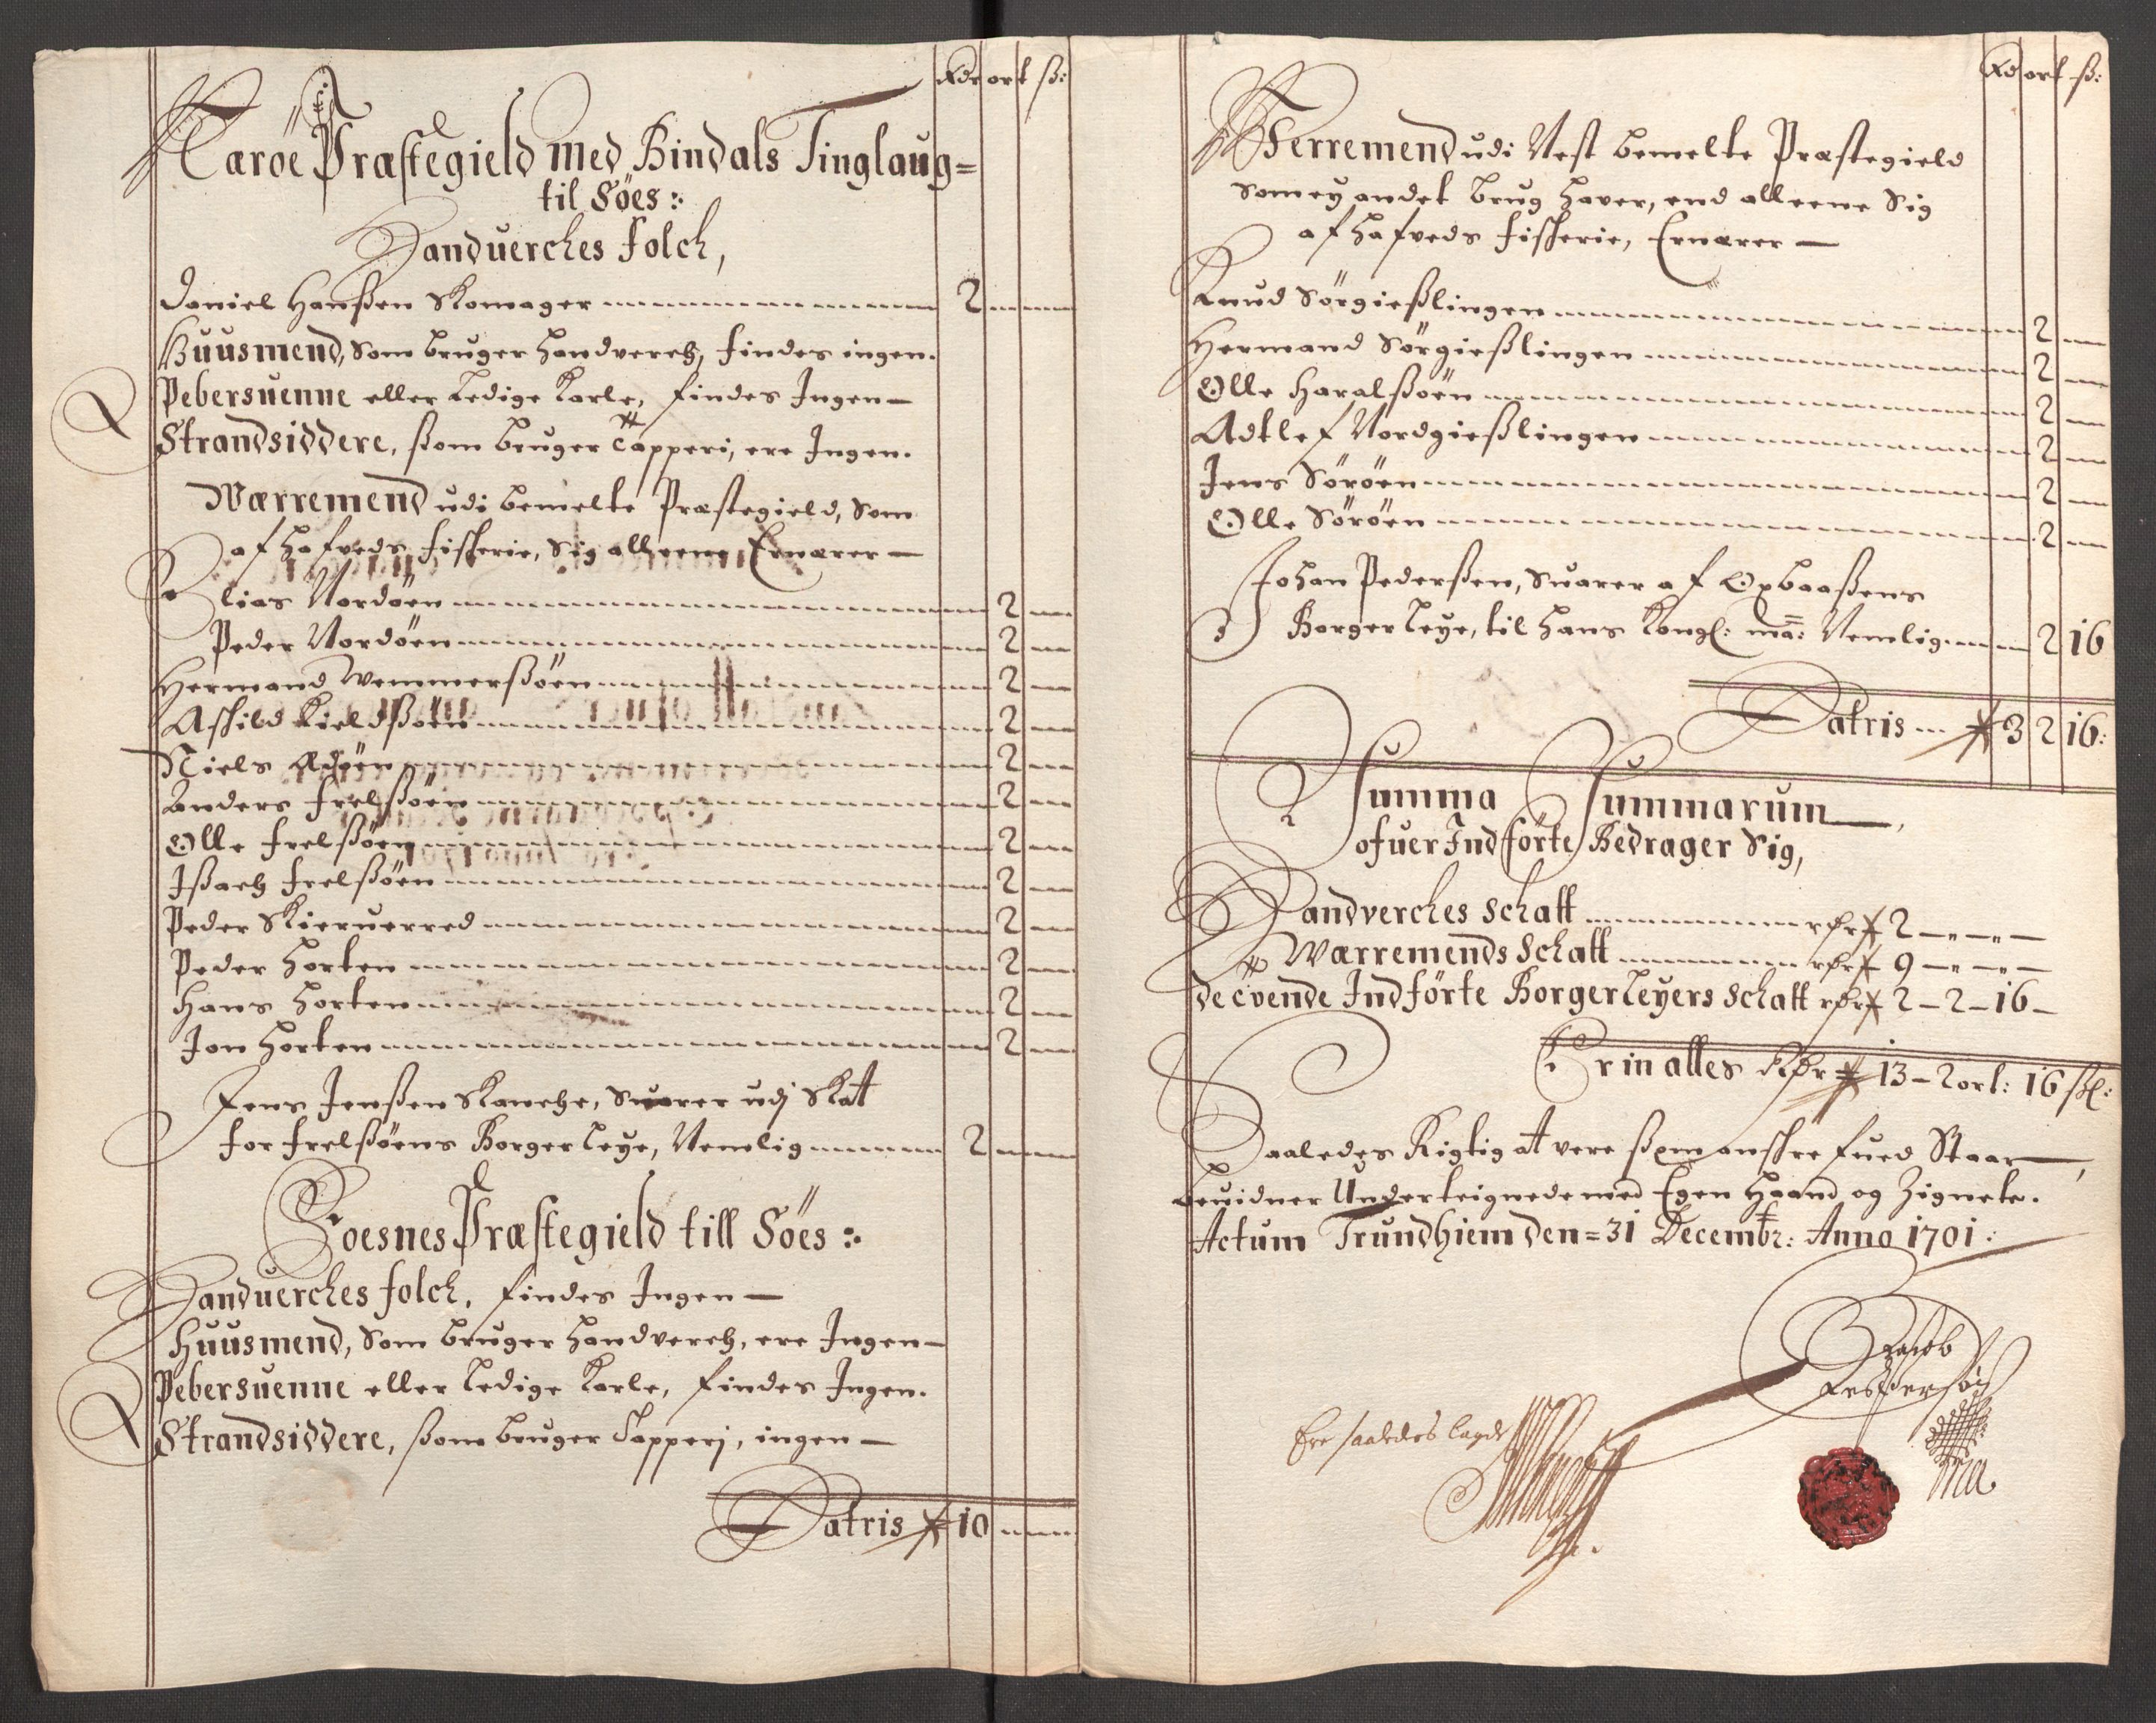 Rdr ort ß:
Næröe Præstegield med Bindals Tinglaug=
til Söes :
Handuerches folch,
Daniel Hanßen Skomager 2
Huusmend, Som bruger handverch, findes ingen.
Pebersuenne eller Ledige Karle, findes Ingen
Strandsiddere, ßom bruger Tapperi, ere Ingen.
Wærremend udi bemelte Præstegield, Som
af hafveds fisherie, Sig alleene Ernærer
Elias Nordöen 2
Peder Nordöen 2
Hermand Wemmerßöen 2
Ashild Kieldßöen 2
Niels 2
Anders frelßöen 2
Olle frelßöen 2
Ißach frelßöen 2
Peder Skieruerred 2
Peder Horten 2
Hans Horten 2
Jon Horten 2
Jens Jenßen Skanche, Suarer udj Skat
for frelßöens Borger leye, Nemlig 2
Foesnes Præstegield till Söes :
Handuerches folch, findes Ingen
Huusmend, Som bruger handverch, ere Ingen
Pebersuenne eller Ledige Karle, findes Ingen.
Strandsiddere, ßom bruger Tapperj, ingen
Latris 10
Rd ort ß:
Werremend udi Nest bemelte Præstegield
Som ey andet brug haver, end alleene Sig
af hafveds fisherie, Ernærer
Knud Sörgießlingen 2
Hermand Sörgießlingen 2
Olle Haralßöen 2
Adtlef Nordgießlingen 2
Jens Söröen 2
Olle Söröen 2
Johan Pederßen, Suarer af Opbaaßens
Borger leye, til Hans Kongl: ma: Nemlig 2 16
Latris 3 2 16:
Summa Summarum
ofuer Indförte Bedrager Sig,
Handverches Schatt rdr 2
Wærremends Schatt rdr 9
de tvende Indförte Borgerleyers Schatt rdr 2 - 2 - 16
Er in alles Rdr 13 - 2 ort: 16 ßl:
Saaledes Rigtig at vere ßom anskrefued Staar,
bevidner Underteignede med Egen Haand og Zignete.
Actum Trundhiem den = 31 Decembr: Anno 1701 :
Ere saaledes lagde
Jacob